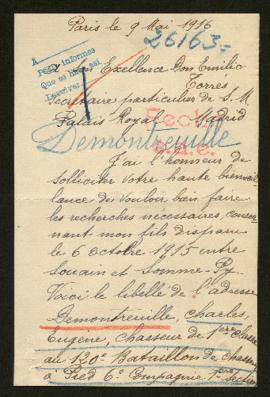 Paris le 9 Mai 1916
26163=
A
Pedir informes
Que se
Excellence Don Emilio
Torrés
Secrétaire particulier de S. M
Palais Royal Madrid
Demontreuille
J'ai l'honneur de
solliciter votre haute bienveil
lance de vouloir bien faire
les recherches nécessaires, concer
nant mon fils disparu
le 6 octobre 1915 entre
Souain et Somme-Py
Voici le libellé de l'adresse
Demontreuille, Charles,
Eugène, chasseur de 1ère classe
au 120e Bataillon de Chasseurs
à Pied 6e Compagnie 1ère Section